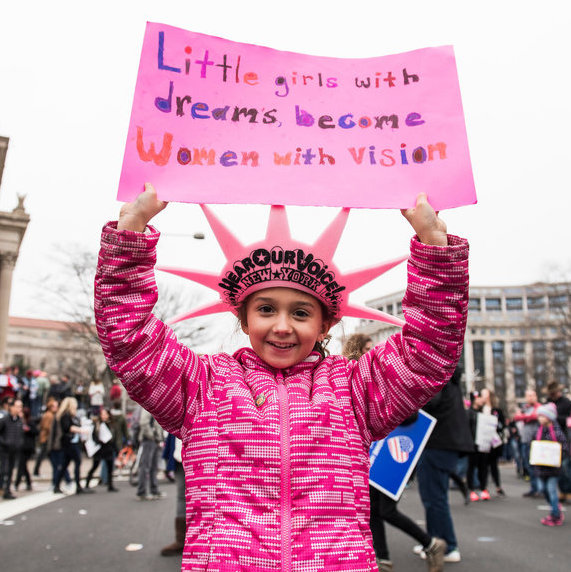 Little girls with
dreams, become
Women with vision
HEAR OUR VOICE!
NEW★YORK